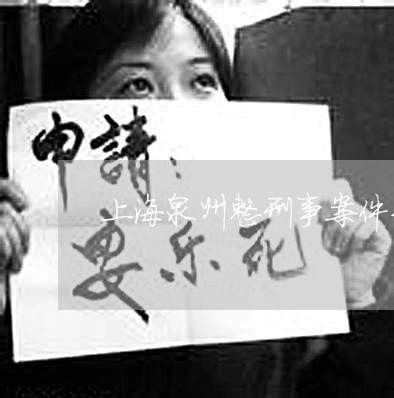 申請：
上海泉州整刑事案件
安乐死